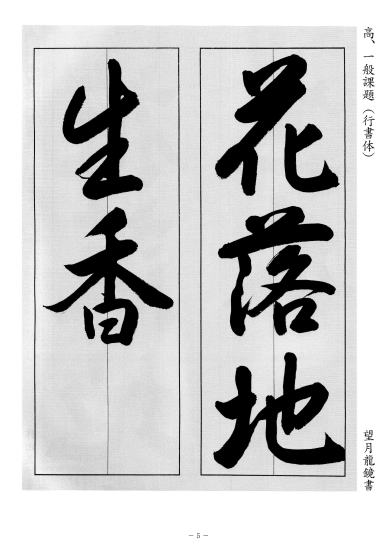 高、一般課題（行書体）
花落地
生香
望月龍鏡書
－5－